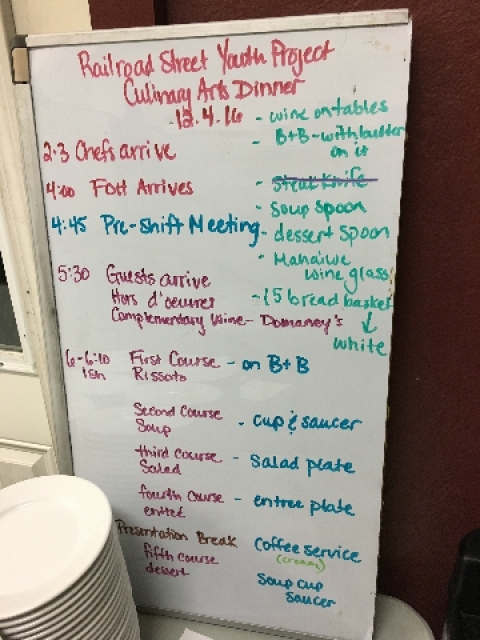 Railroad Street Youth Project
Culinary Arts Dinner
-12.4.16
- wine on tables
- B+B - with butter
on it
2-3 Chefs arrive
4:00 FOH Arrives
- Steak Knife
- Soup Spoon
4:45 Pre-shift Meeting
- dessert Spoon
- Mahaiwe
wine glass
5:30 Guests arrive
Hors d'oeuvres
- 15 bread basket
Complementary Wine - Domaney's
white
6-6:10 First Course - on B+B
ish Rissoto
Second Course - cup & saucer
Soup
third course - Salad plate
Salad
fourth course - entree plate
entree
Presentation Break
Coffee service
(cream)
fifth course
dessert
Soup cup
Saucer